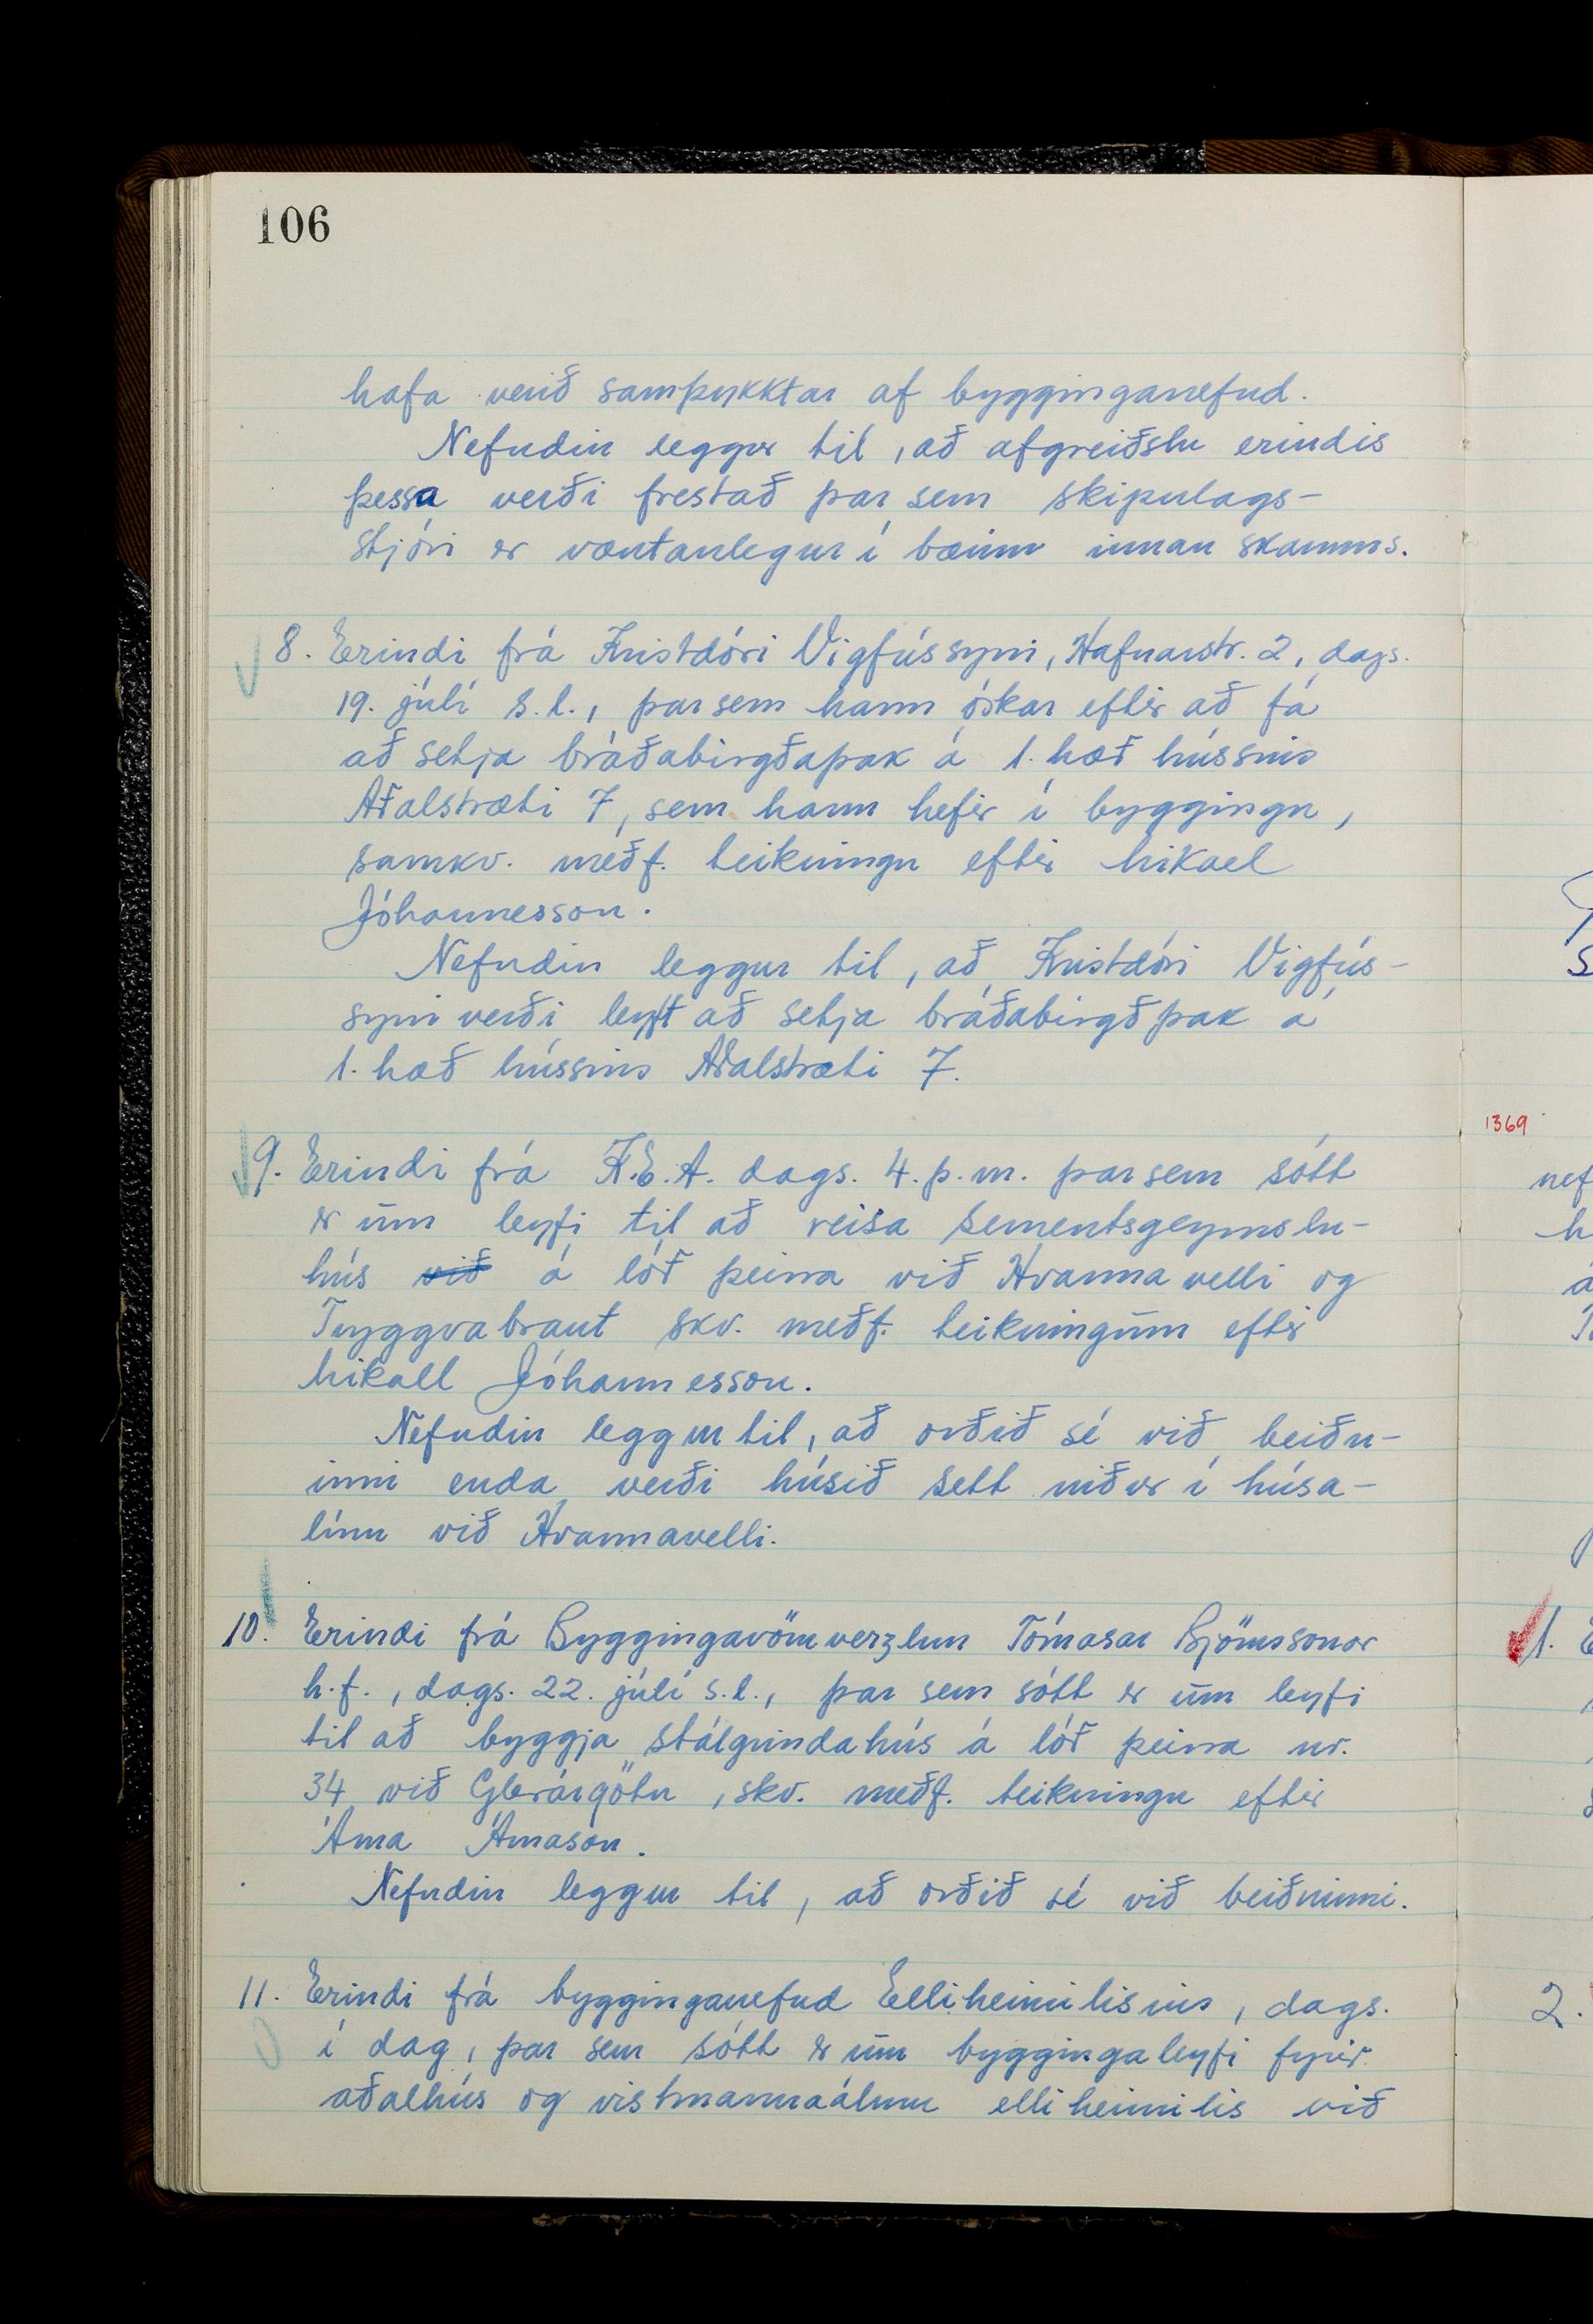 106
hafa verið samþykktar af bygginganefnd.
Nefndin leggur til, að afgreiðslu erindis
þessa verði frestað þar sem skipulags-
stjóri er væntanlegur í bæinn innan skamms.
8. Erindi frá Kristdóri Vigfússyni, Hafnarstr. 2, dags.
19. júlí s.l., þar sem hann óskar eftir að fá
að setja bráðabirgðaþak á 1. hæð hússins
Aðalstræti 7, sem hann hefir í byggingu,
samkv. meðf. teikningu eftir Mikael
Jóhannesson.
Nefndin leggur til, að Kristdóri Vigfús-
syni verði leyft að setja bráðabirgðþak á
1. hæð hússins Aðalstræti 7.
9. Erindi frá K.E.A. dags. 4. þ.m. þar sem sótt
er um leyfi til að reisa sementsgeymslu-
hús við á lóð þeirra við Hvannavelli og
Tryggvabraut skv. meðf. teikningum eftir
Mikael Jóhannesson.
Nefndin leggur til, að orðið sé við beiðn-
inni enda verði húsið sett niður í húsa-
línu við Hvannavelli.
10. Erindi frá Byggingavöruverzlun Tómasar Björnssonar
h.f., dags. 22. júlí s.l., þar sem sótt er um leyfi
til að byggja stálgrindahús á lóð þeirra nr.
34 við Glerárgötu, skv. meðf. teikningu eftir
Árna Árnason.
Nefndin leggur til, að orðið sé við beiðninni.
11. Erindi frá bygginganefnd Elliheimilisins, dags.
í dag, þar sem sótt er um byggingaleyfi fyrir
aðalhús og vistmannaálmu elliheimilis við
1369
nef
1.
2.